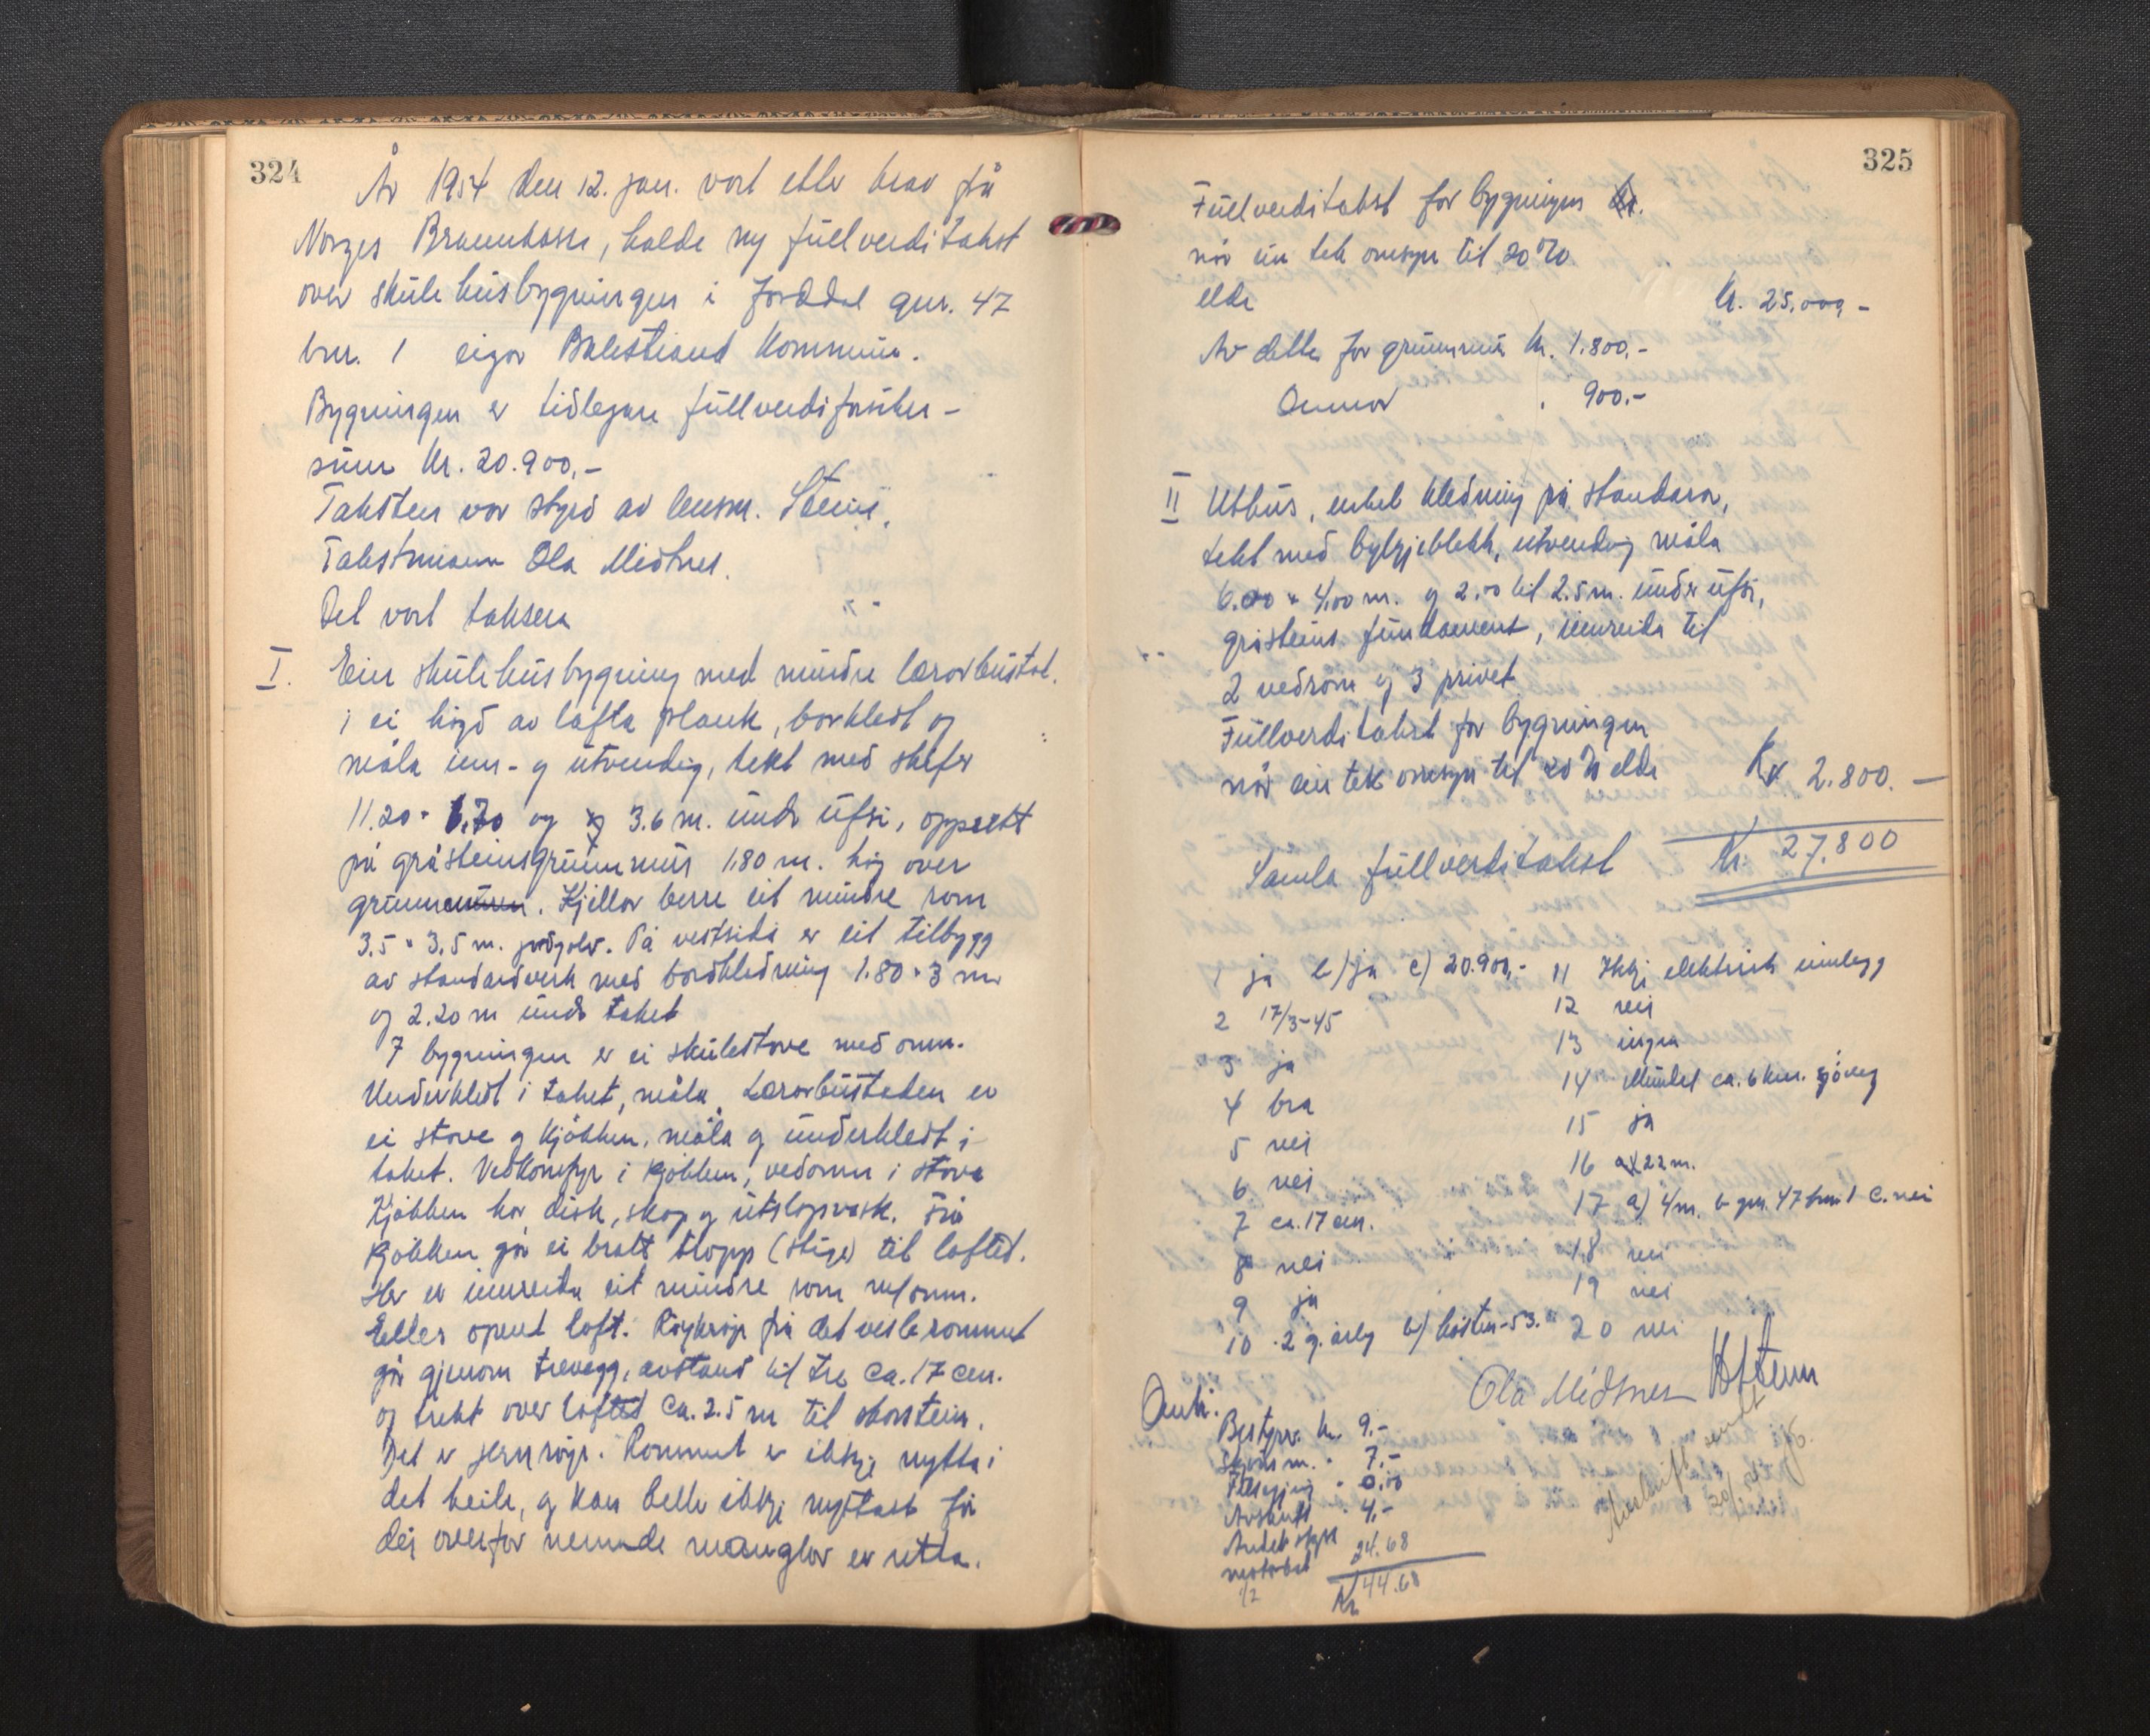 324
År 1954 den 12. jan. vart etter krav frå
Norges Brannkasse, halde ny fullverditakst
over skulehusbygningen i Jorddal gnr. 47
bnr. 1 eigar Balestrand kommune.
Bygningen er tidlegare fullverdiforsikr-
Kr. 20.900,-
Taksten var styrd av lensm. Steinï.
Takstmann Ola Midtnes.
Det vart taksera
I. Ein skulehusbygning med mindre lærarbustad.
i ei høgd av lafta plank, bordkledt og
måla inn- og utvendig, tekt med skifer
11.20 × 6.70 og 3.6 m. under ufsi, oppsett
på gråsteinsgrunnmur 1.80 m. høg over
grunnen. Kjellar berre eit mindre rom
3.5 × 3.5 m. jordgolv. På vestsida er eit tilbygg
av standardverk med bordkledning 1.80 × 3 m
og 2.20 m under taket
I bygningen er ei skulestove med omn.
Underkledt i taket, måla. Lærarbustaden er
ei stove og kjøkken, måla og underkledt i
taket. Vedkomfyr i kjøkken, vedomn i stova
Kjøkken har disk, skap og utslagsvask. Frå
kjøkken går ei bratt tropp (stige) til loftet.
Her er innreida eit mindre rom m/omn.
Elles opent loft. Røykrøyr frå det vesle rommet
går gjenom trevegg, avstand til tre ca. 17 cm.
og trekt over loftet ca. 2.5 m til skorstein.
Det er jernrøyr. Rommet er ikkje nytta i
det heile, og kan heller ikkje nyttast før
dei ovanfor nemnde manglar er retta.
325
Fullverditakst for bygningen
når ein tek omsyn til 20%
elde Kr. 25.000,-
Av dette for grunnmur kr. 1.800,-
Omnar " 900.-
II Uthus, enkel kledning på standarar,
tekt med bylgjeblekk, utvendig måla
6.00 × 4.00 m. og 2.00 til 2.5 m. under ufsi,
gråsteins fundament, innreida til
2 vedrom og 3 privet
Fullverditakst for bygningen
når ein tek omsyn til 20% elde Kr. 2.800.-
Samla fullverditakst Kr. 27.800
1 ja b) ja c) 20.900,-
2 17/3-45
3 ja
4 bra
5 nei
6 nei
7 ca. 17 cm.
8 nei
9 ja
10 2 g. årleg b) hausten-53.
11 Ikkj elektrisk innlegg
12 nei
13 ingen
14 ca. 6 km. sjøveg
15 ja
16 22 m.
17 a) 4 m. b gnr. 47 bnr 1 c. nei
18 nei
19 nei
20 nei
Ola Midtnes
Bestyrer kr. 9.-
Skjøns m. " 7.-
" 0.00
Avskrift " 4.-
24.68
motorbåt
1/2 Kr 44.68
Avskrift sendt